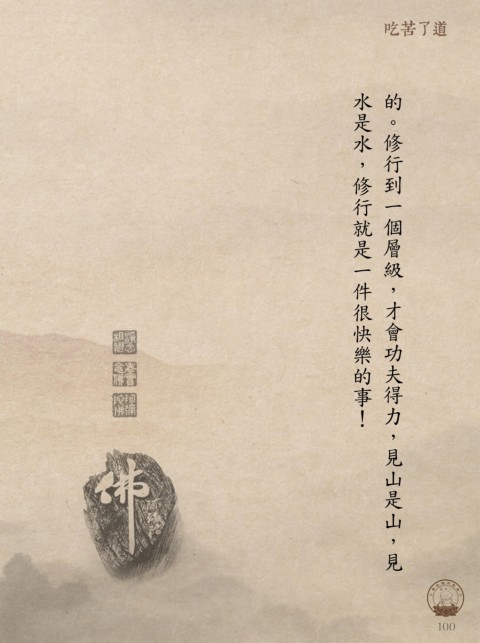 吃苦了道
的。修行到一個層級，才會功夫得力，見山是山，見
水是水，修行就是一件很快樂的事！
佛
100